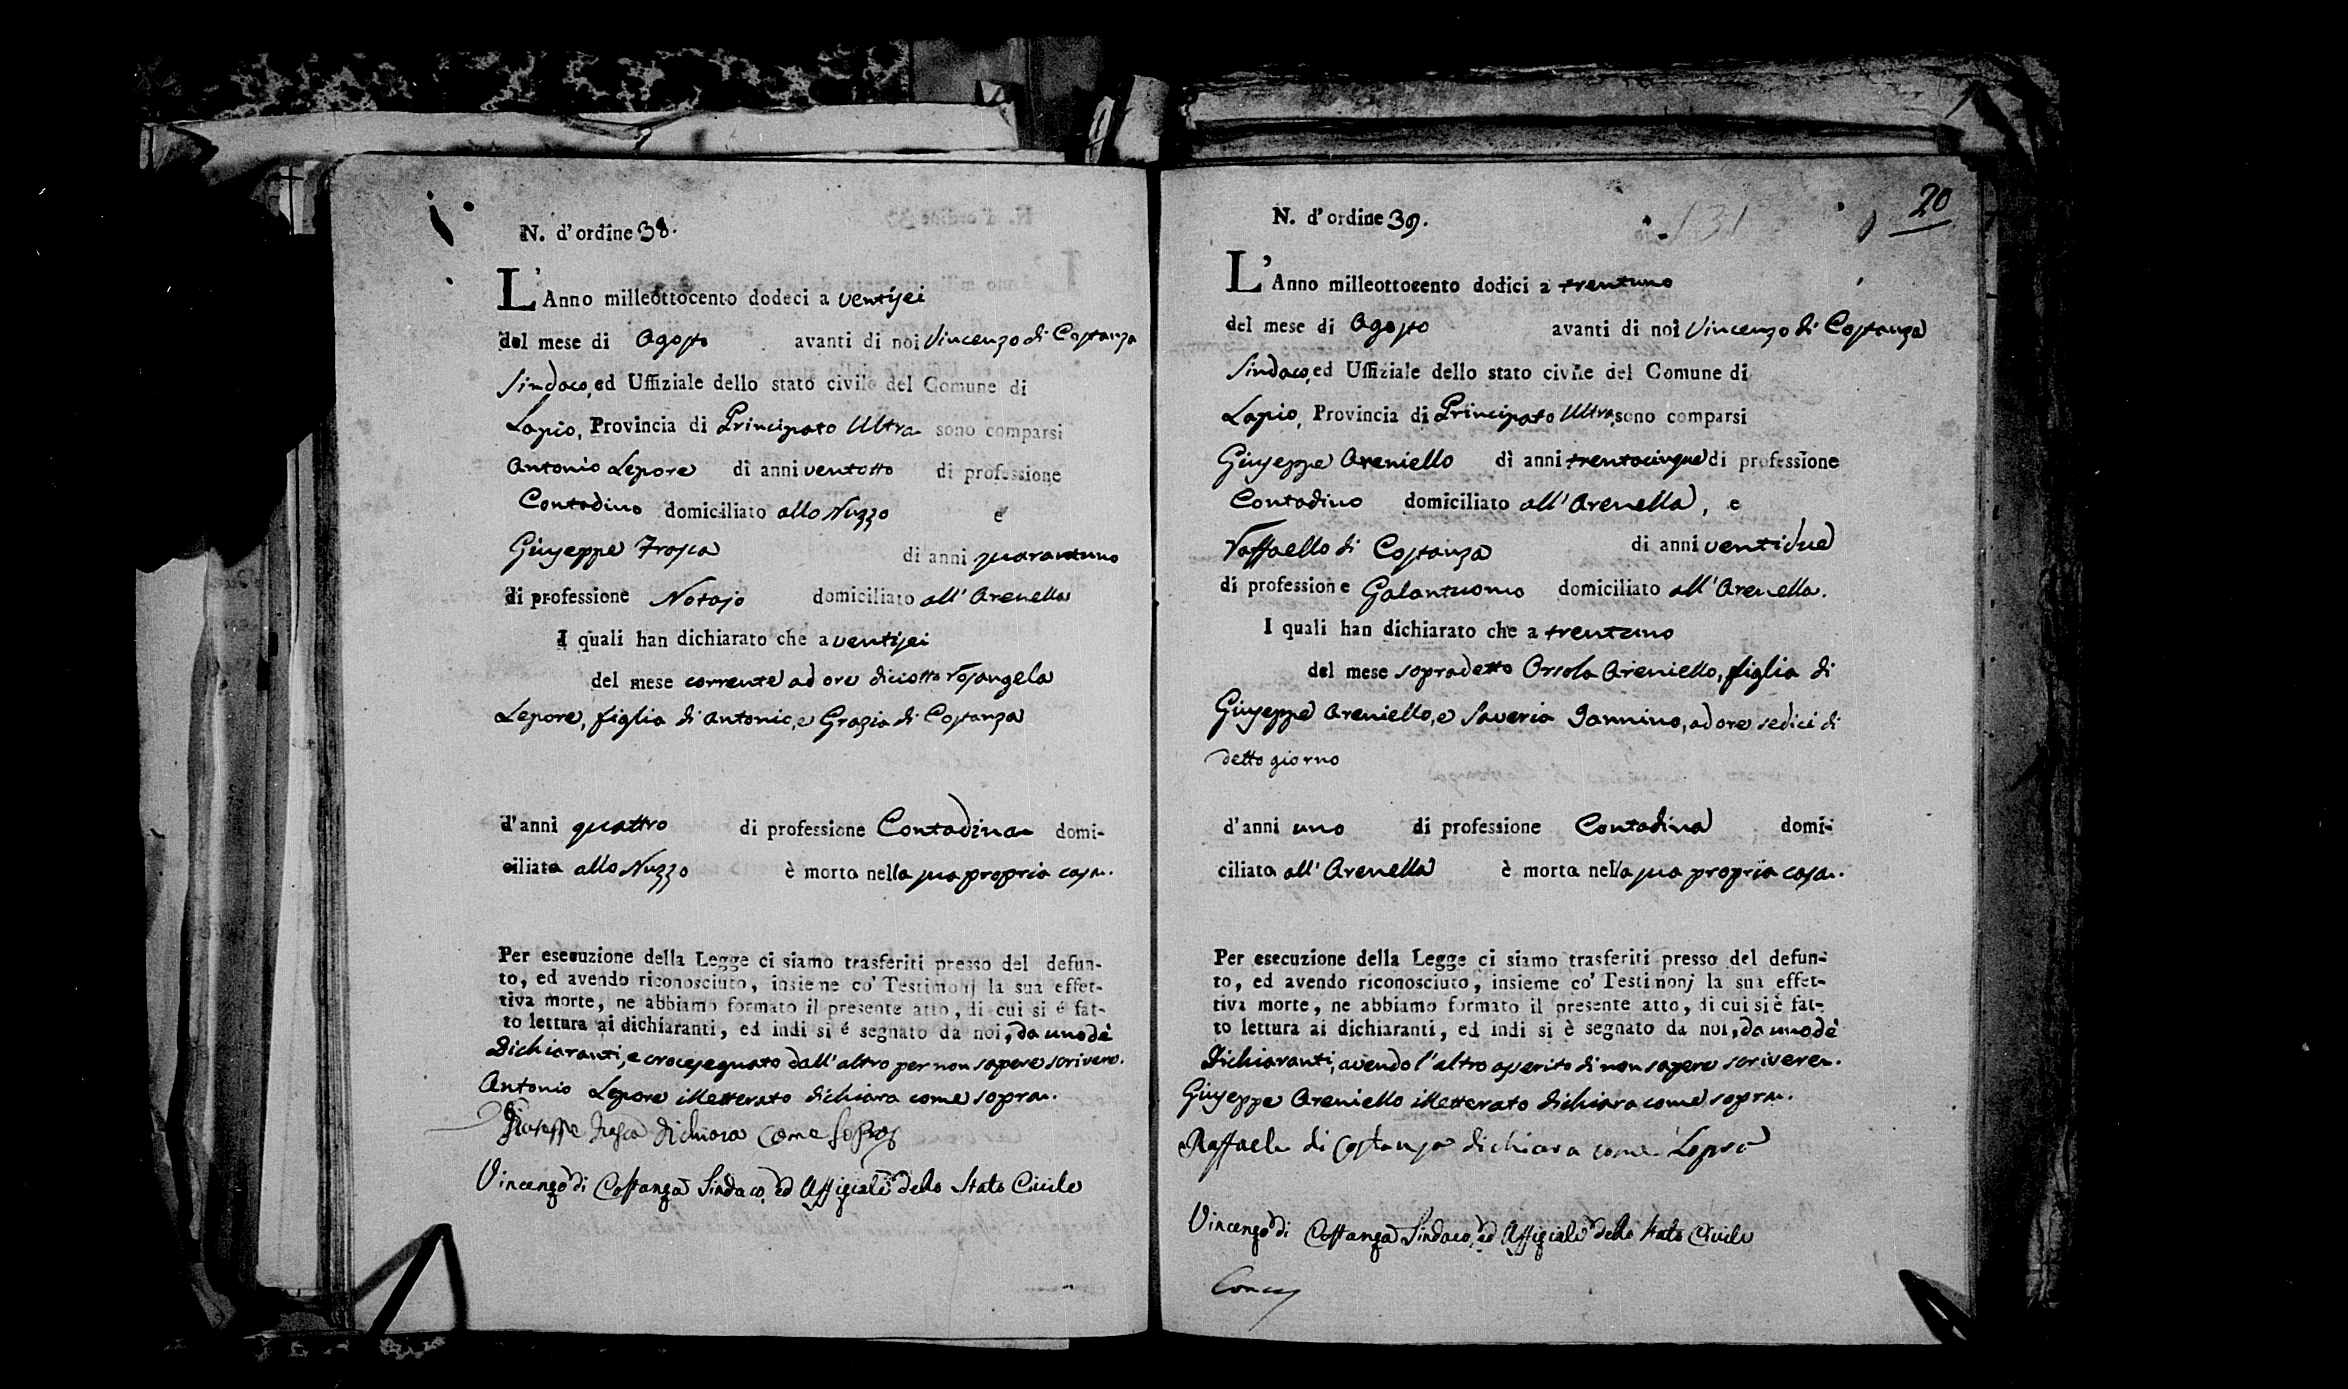 N. d'ordine 38.
L'Anno milleottocento dodeci a ventisei
del mese di Agosto avanti di noi Vincenzo di Costanza
Sindaco, ed Uffiziale dello stato civile del Comune di
Lapio, Provincia di Principato Ultra sono comparsi
Antonio Lepore di anni ventotto di professione
Contadino domiciliato allo Nuzzo e
Giuseppe Trosca di anni quarantuno
di professione Notajo domiciliato all'Arenella
I quali han dichiarato che a ventisei
del mese corrente ad ore diciotto Rosangela
Lepore, figlia di Antonio, e Grazia di Costanza
d'anni quattro di professione Contadina domi-
ciliata allo Nuzzo è morta nella sua propria casa.
Per esecuzione della Legge ci siamo trasferiti presso del defun-
to, ed avendo riconosciuto, insieme co' Testimonj la sua effet-
tiva morte, ne abbiamo formato il presente atto, di cui si é fat-
to lettura ai dichiaranti, ed indi si é segnato da noi, da uno dè
Dichiaranti, e crocesegnato dall'altro per non sapere scrivere.
Antonio Lepore illetterato dichiara come sopra.
Giuseppe Trosca dichiara come sopra
Vincenzo di Costanza Sindaco, ed Uffiziale dello Stato Civile
20
131
N. d'ordine 39.
L'Anno milleottocento dodici a trentuno
del mese di Agosto avanti di noi Vincenzo di Costanza
Sindaco, ed Uffiziale dello stato civile del Comune di
Lapio, Provincia di Principato Ultra, sono comparsi
Giuseppe Areniello di anni trentacinque di professione
Contadino domiciliato all'Arenella, e
Raffaello di Costanza di anni ventidue
di professione Galantuomo domiciliato all'Arenella.
I quali han dichiarato che a trentuno
del mese sopradetto Orsola Areniello, figlia di
Giuseppe Areniello, e Saveria Iannino, ad ore sedici di
detto giorno
d'anni uno di professione Contadina domi-
ciliata all'Arenella è morta nella sua propria casa.
Per esecuzione della Legge ci siamo trasferiti presso del defun-
to, ed avendo riconosciuto, insieme co' Testimonj la sua effet-
tiva morte, ne abbiamo formato il presente atto, di cui si è fat-
to lettura ai dichiaranti, ed indi si è segnato da noi, da uno dè
Dichiaranti, avendo l'altro asserito di non sapere scrivere.
Giuseppe Areniello illetterato dichiara come sopra.
Raffaele di Costanza dichiara come sopra
Vincenzo di Costanza Sindaco, ed Uffiziale dello Stato Civile